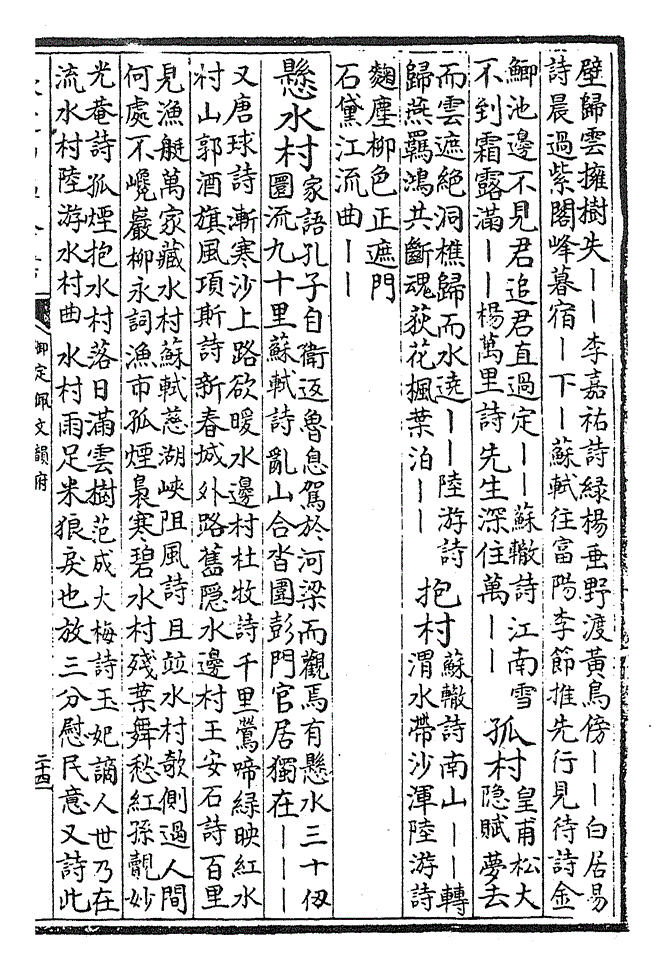 壁歸雲擁樹失——李嘉祐詩綠楊垂野渡黃鳥傍——白居易
詩晨過紫閣峰暮宿—下—蘇軾往富陽李節推先行見待詩金
鯽池邊不見君追君直過定——蘇轍詩江南雪
不到霜露滿——楊萬里詩先生深住萬——
孤村
皇甫松大
隱賦夢去
而雲遮絕洞樵歸而水遶——陸游詩
歸燕羈鴻共斷魂荻花楓葉泊——
抱村
蘇轍詩南山——轉
渭水帶沙渾陸游詩
麴塵柳色正遮門
石黛江流曲——
懸水村
家語孔子自衛返魯息駕於河梁而觀焉有懸水三十仭
圜流九十里蘇軾詩亂山合沓圍彭門官居獨在———
又唐球詩漸寒沙上路欲暖水邊村杜牧詩千里鶯啼綠映紅水
村山郭酒旗風項斯詩新春城外路舊隱水邊村王安石詩百里
見漁艇萬家藏水村蘇軾慈湖峽阻風詩且竝水村欹側過人間
何處不巉巖柳永詞漁市孤煙裊寒碧水村殘葉舞愁紅孫覿妙
光菴詩孤煙抱水村落日滿雲樹范成大梅詩玉妃謫人世乃在
流水村陸游水村曲水村雨足米狼戾也放三分慰民意又詩此
御定佩文韻府
二十四